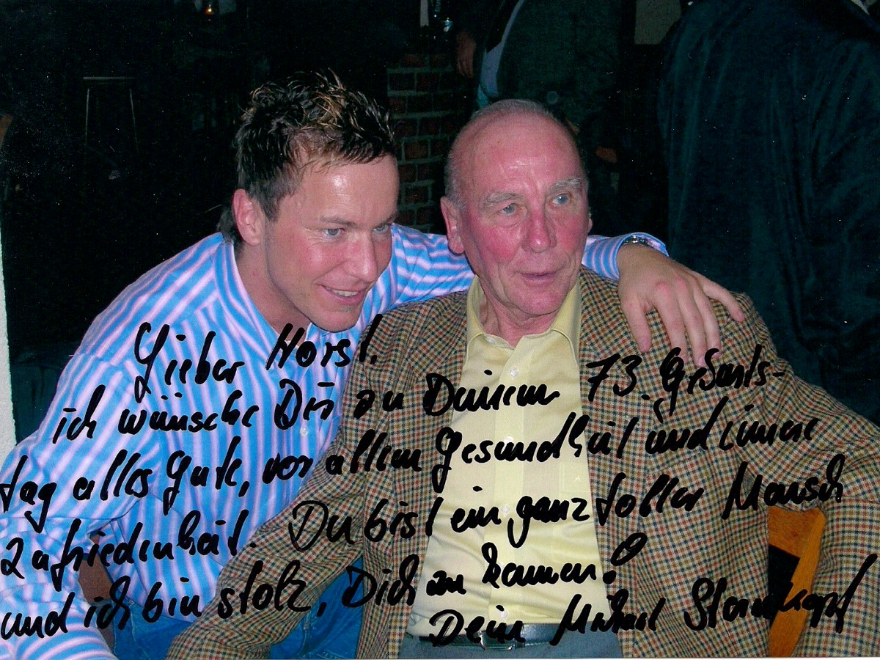 Lieber Horst,
ich wünsche Dir zu Deinem 73. Geburts-
tag alles Gute, vor allem Gesundheit und innere
Zufriedenheit. Du bist ein ganz toller Mensch
und ich bin stolz, Dich zu kennen!
Dein Michael